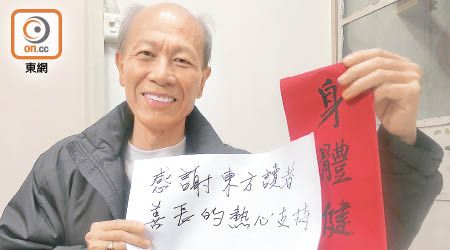 on.cc
東網
感謝東方讀者
善長的熱心支持
身體健